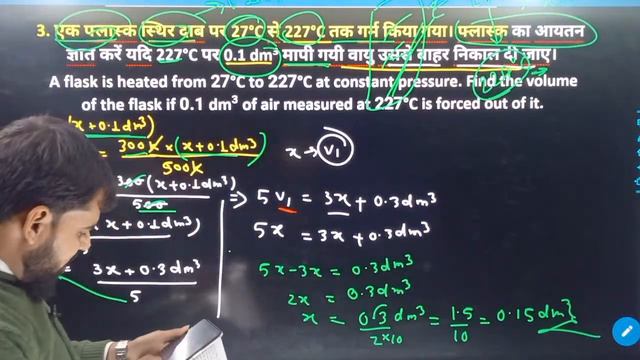 3. एक फ्लास्क स्थिर दाब पर 27°C से 227°C तक गर्म किया गया। फ्लास्क का आयतन
ज्ञात करें यदि 227°C पर 0.1 dm³ मापी गयी वायु उससे बाहर निकाल दी जाए।
A flask is heated from 27°C to 227°C at constant pressure. Find the volume
of the flask if 0.1 dm³ of air measured at 227°C is forced out of it.
(x+0.1dm³)
= 300K × (x+0.1dm³)
500K
300 (x+0.1dm³)
500
x+0.1dm³)
= 3x+0.3dm³
5
x → V₁
⇒ 5V₁ = 3x+0.3dm³
5x = 3x+0.3dm³
5x-3x = 0.3dm³
2x = 0.3dm³
x = 0.3dm³ = 1.5 = 0.15dm³
2×10 10